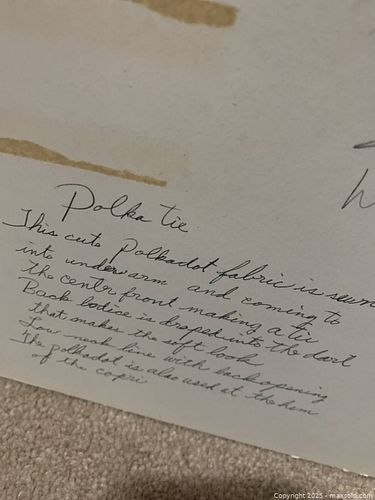 Polka tie
This cute Polkadot fabric is sewn
into underarm and coming to
the centr front making a tie
Back bodice is draped into the dart
that makes the soft look
Low neck line with back opening
The polkadot is also used at the hem
of the capri
Copyright 2025 - maxsold.com